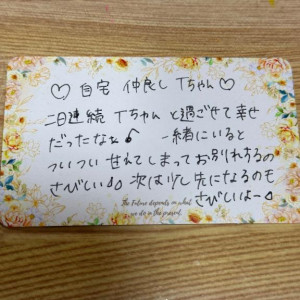 ♡ 自宅 仲良し Tちゃん♡
二日連続 Tちゃん と過ごせて幸せ
だったなぁ♪ 一緒にいると
ついつい 甘えてしまってお別れするの
さびしい 次は少し先になるのも
さびしいよー
The Future depends on what
we do in the present.